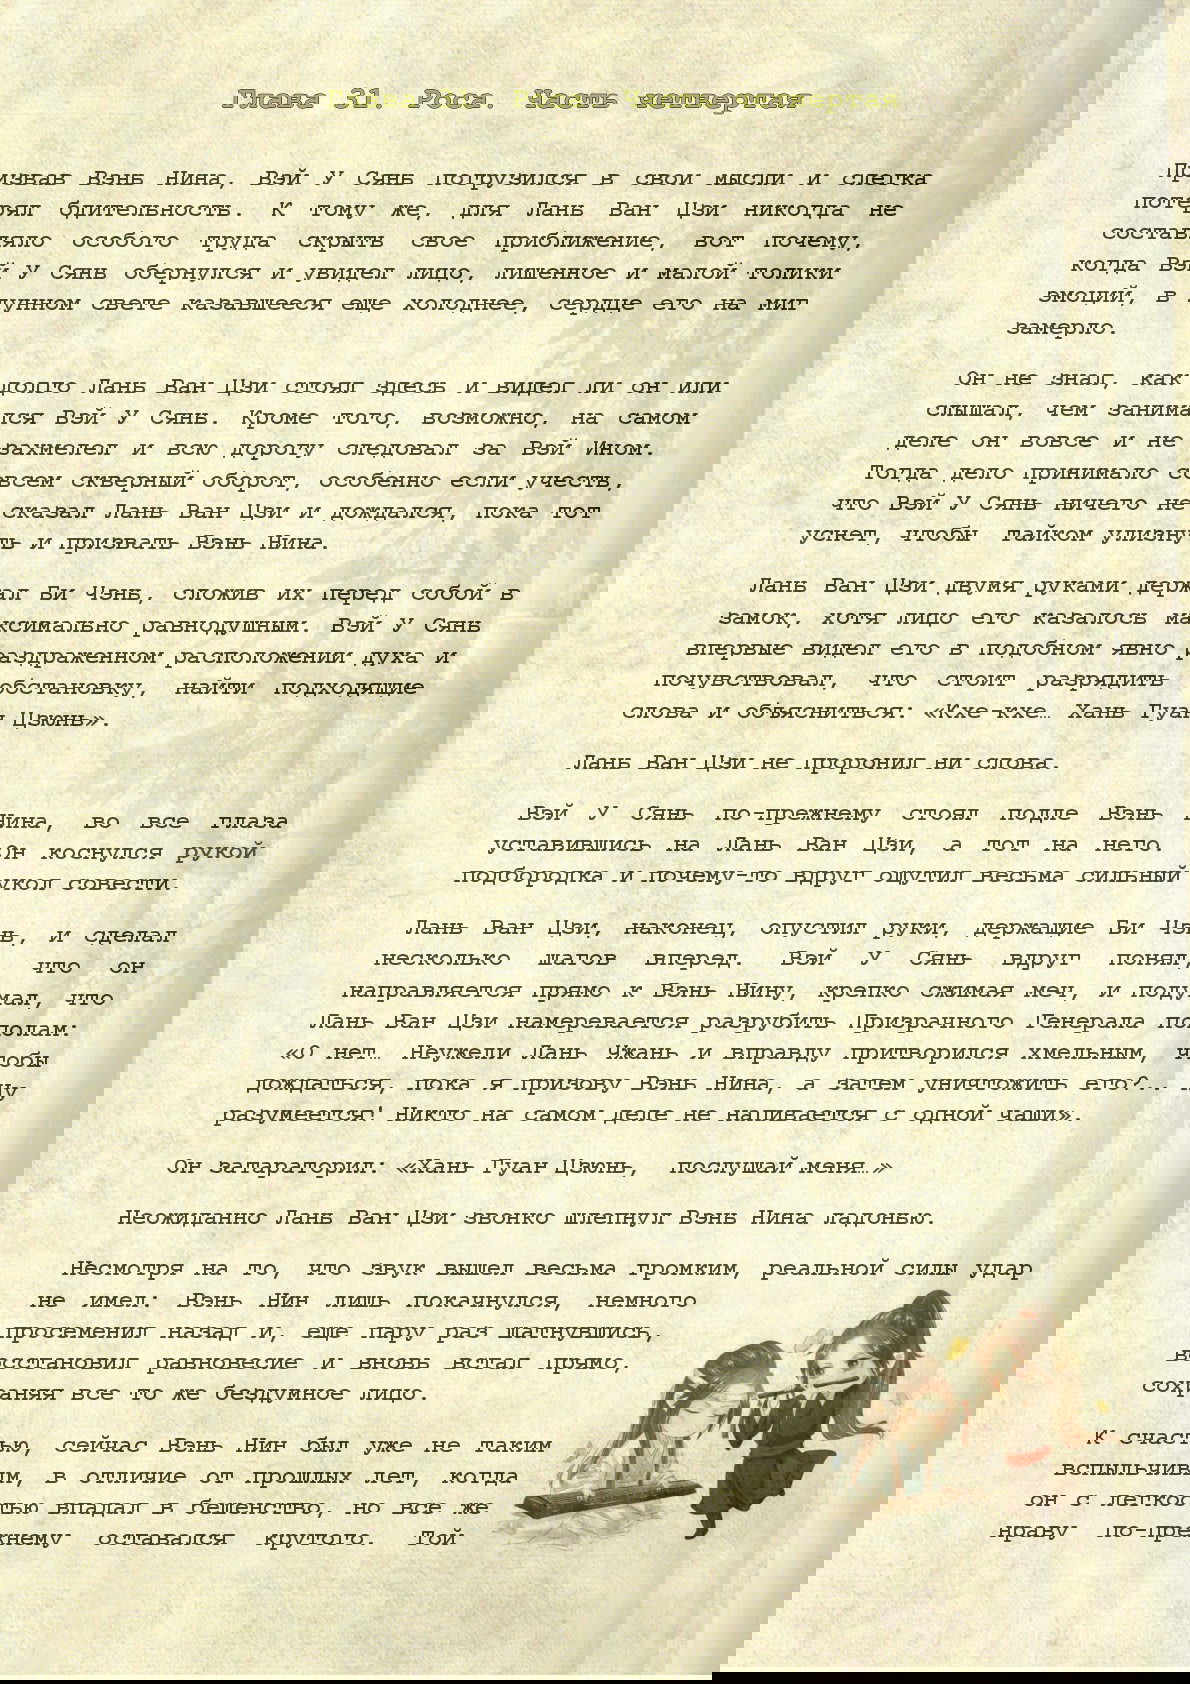 Глава 31. Роса. Часть четвертая
Призвав Вэнь Нина, Вэй У Сянь погрузился в свои мысли и слегка
потерял бдительность. К тому же, для Лань Ван Цзи никогда не
составляло особого труда скрыть свое приближение, вот почему,
когда Вэй У Сянь обернулся и увидел лицо, лишенное и малой толики
эмоций, в лунном свете казавшееся еще холоднее, сердце его на миг
замерло.
Он не знал, как долго Лань Ван Цзи стоял здесь и видел ли он или
слышал, чем занимался Вэй У Сянь. Кроме того, возможно, на самом
деле он вовсе и не захмелел и всю дорогу следовал за Вэй Ином.
Тогда дело принимало совсем скверный оборот, особенно если учесть,
что Вэй У Сянь ничего не сказал Лань Ван Цзи и дождался, пока тот
уснет, чтобы тайком улизнуть и призвать Вэнь Нина.
Лань Ван Цзи двумя руками держал Би Чэнь, сложив их перед собой в
замок, хотя лицо его казалось максимально равнодушным. Вэй У Сянь
впервые видел его в подобном явно раздраженном расположении духа и
почувствовал, что стоит разрядить обстановку, найти подходящие
слова и объясниться: «Кхе-кхе… Хань Гуан Цзюнь».
Лань Ван Цзи не проронил ни слова.
Вэй У Сянь по-прежнему стоял подле Вэнь Нина, во все глаза
уставившись на Лань Ван Цзи, а тот на него. Он коснулся рукой
подбородка и почему-то вдруг ощутил весьма сильный укол совести.
Лань Ван Цзи, наконец, опустил руки, держащие Би Чэнь, и сделал
несколько шагов вперед. Вэй У Сянь вдруг понял, что он
направляется прямо к Вэнь Нину, крепко сжимая меч, и подумал, что
Лань Ван Цзи намеревается разрубить Призрачного Генерала пополам:
«О нет… Неужели Лань Чжань и вправду притворился хмельным, чтобы
дождаться, пока я призову Вэнь Нина, а затем уничтожить его?.. Ну
разумеется! Никто на самом деле не напивается с одной чаши».
Он затараторил: «Хань Гуан Цзюнь, послушай меня…»
Неожиданно Лань Ван Цзи звонко шлепнул Вэнь Нина ладонью.
Несмотря на то, что звук вышел весьма громким, реальной силы удар
не имел: Вэнь Нин лишь покачнулся, немного
просеменил назад и, еще пару раз шатнувшись,
восстановил равновесие и вновь встал прямо,
сохраняя все то же бездумное лицо.
К счастью, сейчас Вэнь Нин был уже не таким
вспыльчивым, в отличие от прошлых лет, когда
он с легкостью впадал в бешенство, но все же
нраву по-прежнему оставался крутого. Той